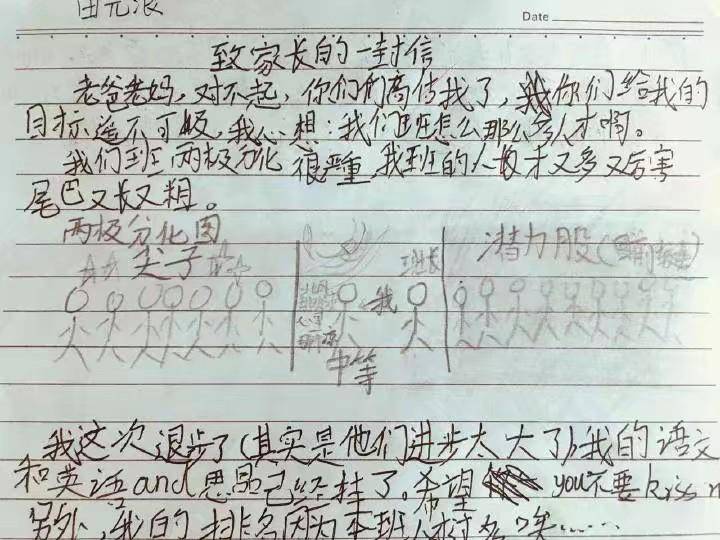 田元浪
Date
致家长的一封信
老爸老妈，对不起，你们们高估我了，你们给我的
目标遥不可极，我心想：我们班怎么那么多人才啊。
我们班两极分化很严重，我班的人才又多又厉害
尾巴又长又粗。
两极分化图
尖子
班长
潜力股（
我
中等
我这次退步了（其实是他们进步太大了）我的语文
和英语and思品已经挂了。希望you不要kiss
另外，我的排名因为本班人才过多唉……